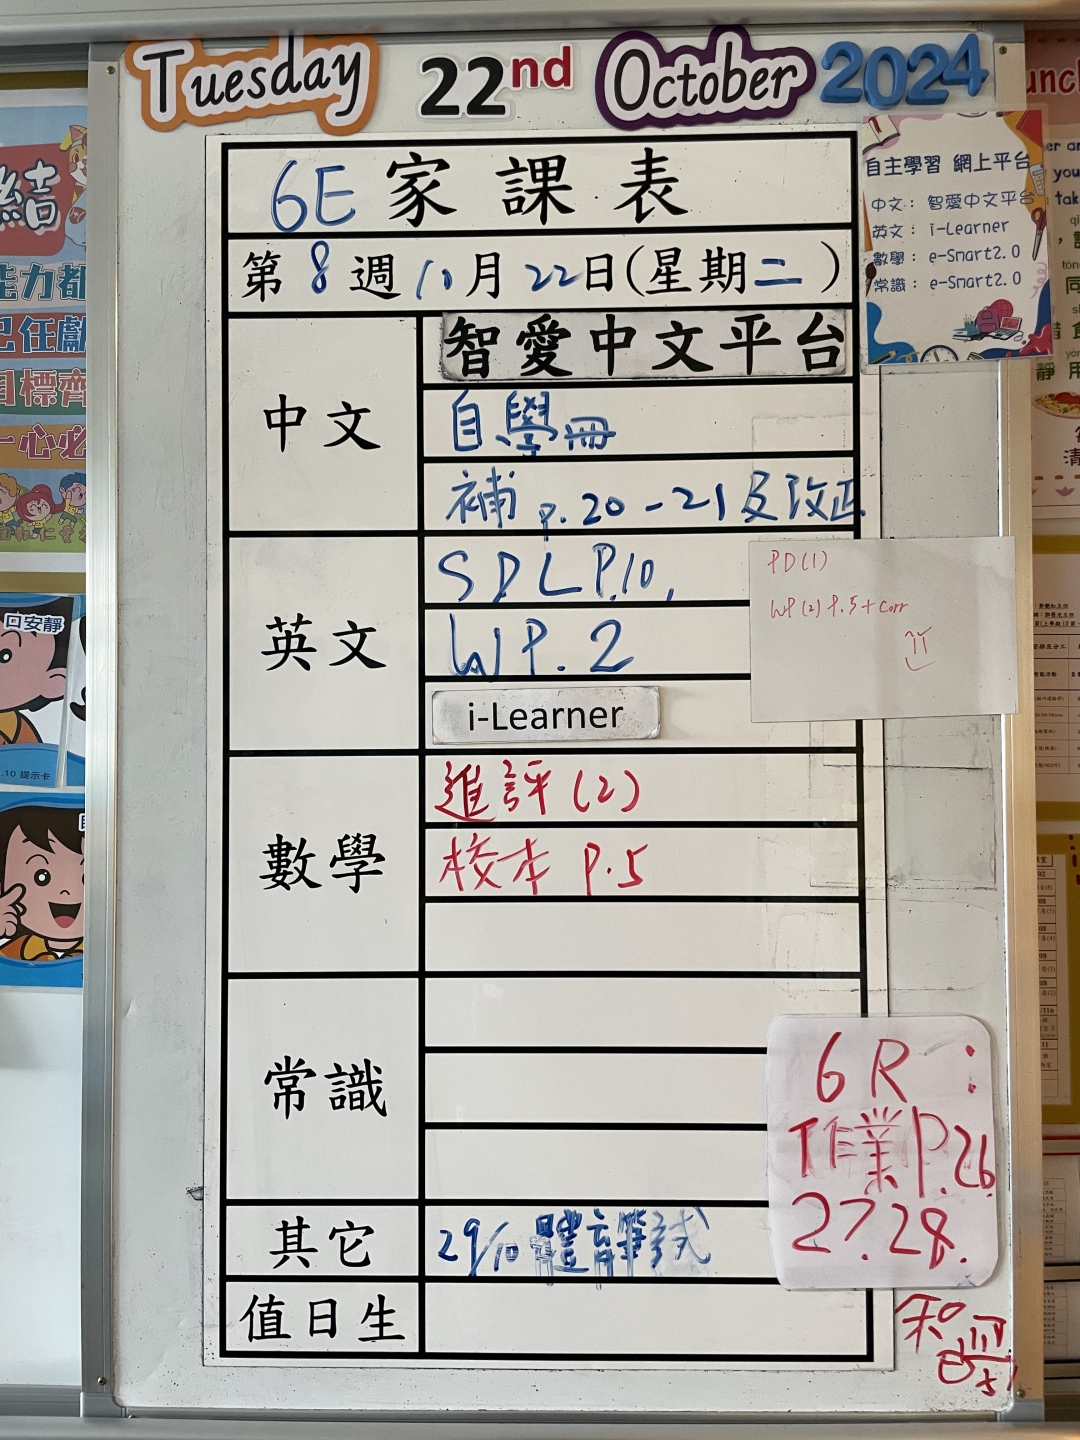 Tuesday 22nd October 2024
6E 家課表
第 8 週 10 月 22 日 (星期二)
中文
智愛中文平台
自學冊
補 p.20-21 及改正
英文
SDL P.10,
WP.2
i-Learner
PD(1)
WP(2) P.5 + Corr
數學
進評(2)
校本 P.5
常識
其它
29/10 體育筆試
值日生
6R:
作業 P.26.
27.28.
自主學習 網上平台
中文: 智愛中文平台
英文: i-Learner
數學: e-Smart2.0
常識: e-Smart2.0
結
能力都
己任獻
目標齊
一心必
口安靜
.10 提示卡